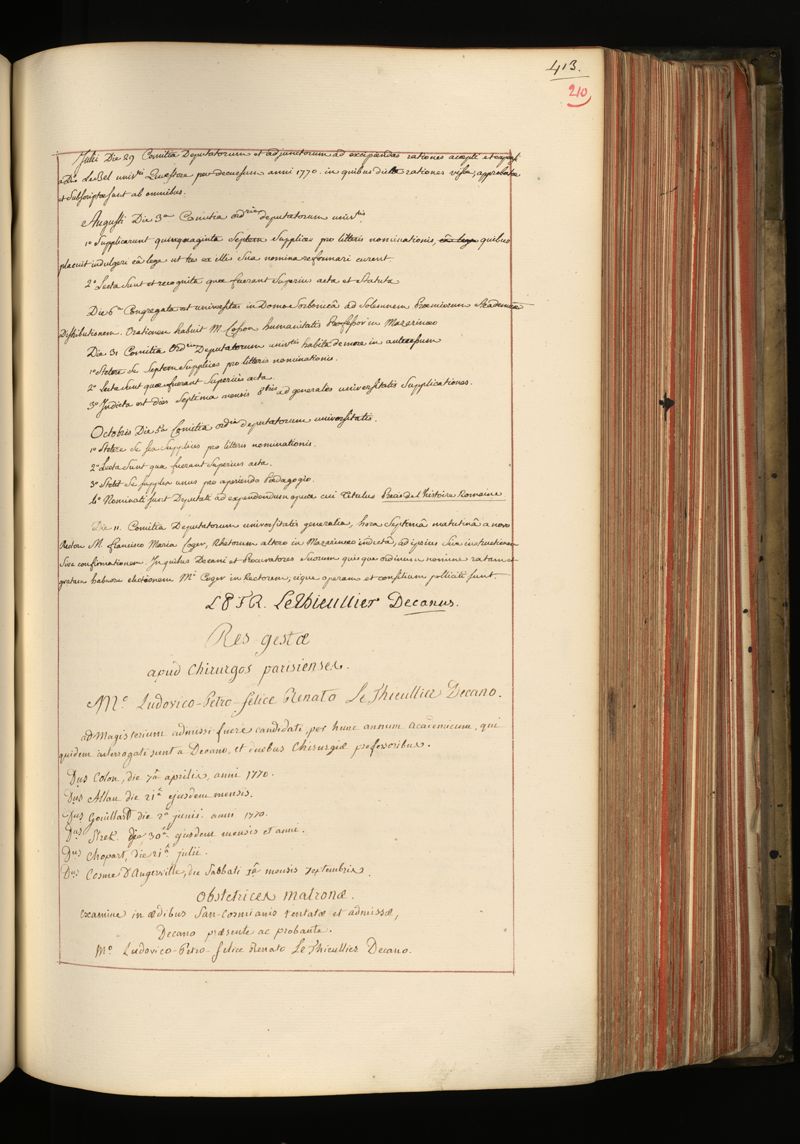 413.
210
Julii Die 29 Comitia Deputatorum et adjunctorum ad excipiendas rationes accepti et expensi
a Dno LeBel univtis Quæstore per decursum anni 1770. in quibus dictæ rationes visæ, approbatæ
et subscriptæ sunt ab omnibus.
Augusti Die 3a Comitia ordria deputatorum univtis
1o Supplicarunt quinquaginta Septem Supplices pro litteris nominationis, quibus
placuit indulgeri eâ lege ut tres ex illis sua nomina reformari curent
2o Lecta sunt et recognita quæ fuerant superius acta et statuta
Die 6a Congregata est universitas in Domo Sorbonicâ ad Solemnem Præmiorum Academiæ
Distributionem. Orationem habuit M. Cosson humanitatis Professor in Mazarinæo
Die 31 Comitia Ordria Deputatorum univtis habita de more in quibus
1o Stetere se Septem Supplices pro litteris nominationis.
2o Lecta sunt quæ fuerant superius acta.
3o Indicta est dies Septima mensis 8bris ad generales universitatis Supplicationes.
Octobris Die 5a Comitia ordria deputatorum universitatis.
1o Stetere se sex Supplices pro litteris nominationis.
2o Lecta sunt quæ fuerant superius acta.
3o Stetit se supplex unus pro aperiendo Pædagogio.
4o Nominati sunt Deputati ad expendendum opus cui titulus Precis del histoire Romaine
Die 11. Comitia Deputatorum universitatis generalia, hora Septimâ matutinâ a novo
Rectore M. Francisco Maria Coger, Rhetorum altero in Mazarinæo indicta, ad ipsius sui instructionem
sive confirmationem In quibus Decani et Procuratores suorum quisque ordinum nomine ratam et
gratam habuere electionem Mri Coger in Rectorem, eique operam et consilium polliciti sunt.
L P F R. LeThieullier Decanus.
Res gestæ
apud Chirurgos parisienses.
Mo Ludovico-Petro-felice Renato LeThieullier Decano.
ad Magisterium admissi fuere candidati, per hunc annum academicum, qui
quidem interrogati sunt a Decano, et duobus Chirurgiæ professoribus.
Dus Colon, die 7a aprilis, anni 1770.
Dus Allan die 21a ejusdem mensis.
Dus Gouillart die 2a junii. anni 1770.
Dus Strek. die 30a. ejusdem mensis et anni.
Dus Chopart, die 21a julii.
Dus Cosme D'Angerville, die Sabbati 1a mensis septembris.
Obstetrices matronæ.
examine in ædibus San-Cosmianis tentatæ et admissæ,
Decano præsente ac probante.
Mo Ludovico-Petro-felice Renato LeThieullier Decano.